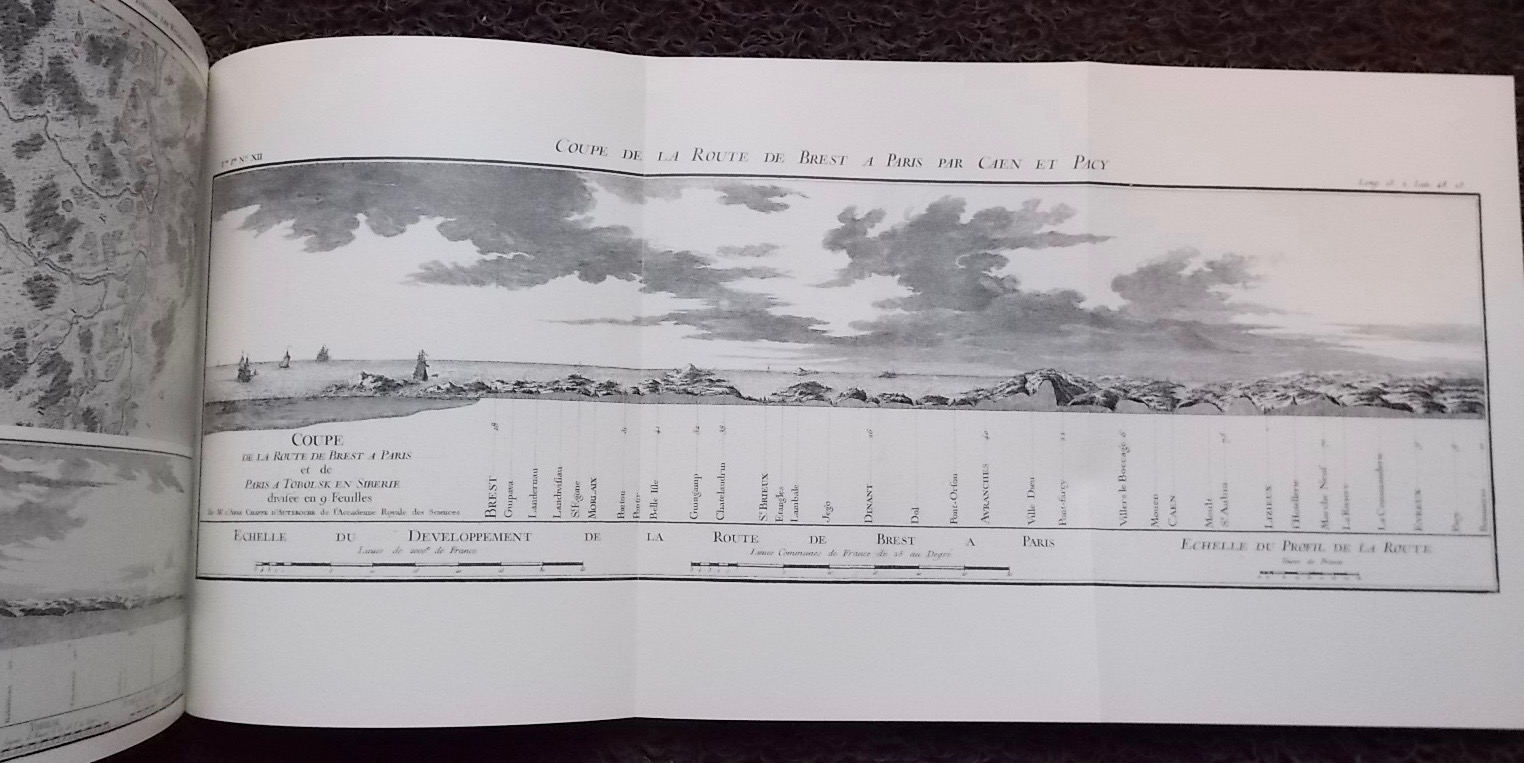 N.º XII
COUPE DE LA ROUTE DE BREST A PARIS PAR CAEN ET PACY
COUPE
DE LA ROUTE DE BREST A PARIS
et de
PARIS A TOBOLSK EN SIBERIE
divisée en 9 Feuilles
CHAPPE D'AUTEROCHE de l'Academie Royale des Sciences
BREST
Guipava
Landernau
Landivisiau
St Egone
MORLAIX
Pontou
Belle Isle
Guingamp
Chatelaudrin
St BRIEUX
Etangles
Lambale
Jego
DINANT
Dol
Pont-Orson
AVRANCHES
Ville Dieu
Pont-farcy
Villers le Boccage
Mouen
CAEN
Moult
St Aubin
LIZIEUX
l'Hotellerie
Marche Neuf
La Riviere
La Commanderie
EVREUX
Pacy
ECHELLE DU DEVELOPPEMENT DE LA ROUTE DE BREST A PARIS
Lieues de 2000 de France
Lieues Communes de France de 25 au Degré
ECHELLE DU PROFIL DE LA ROUTE